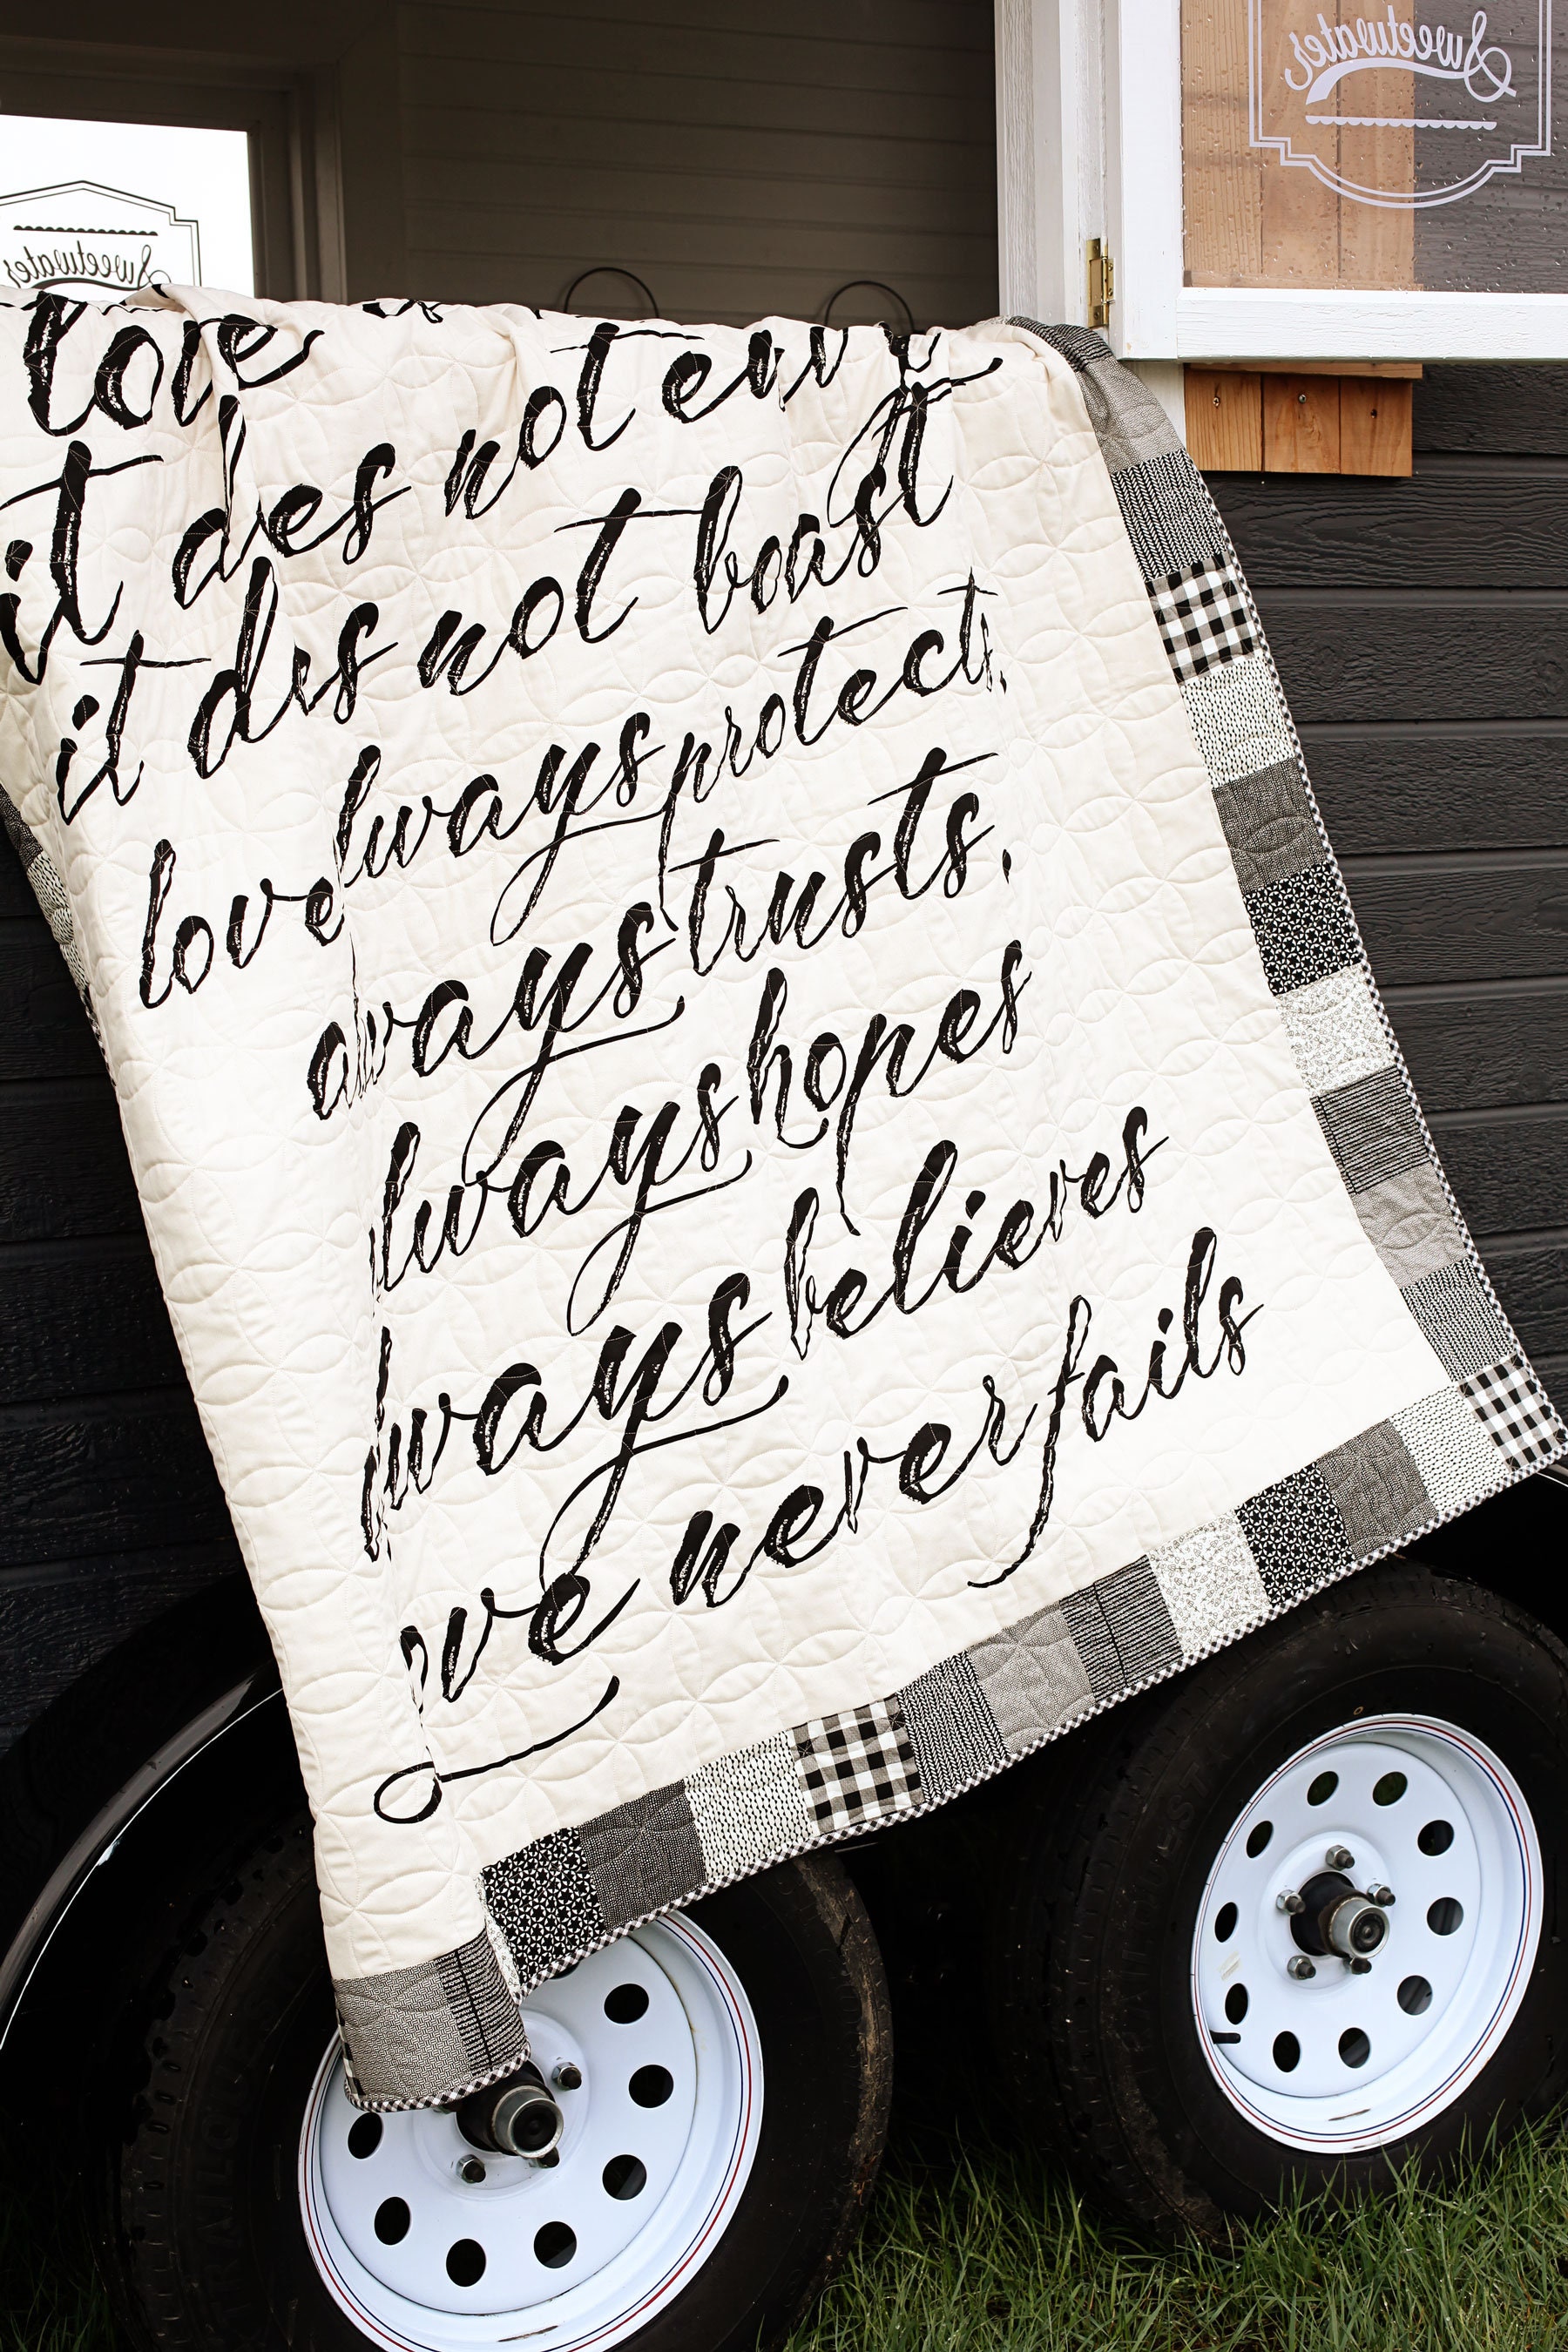 Sweetwater
Sweetwater
love
it does not envy
it does not boast
love always protects,
always trusts,
always hopes
always believes
love never fails